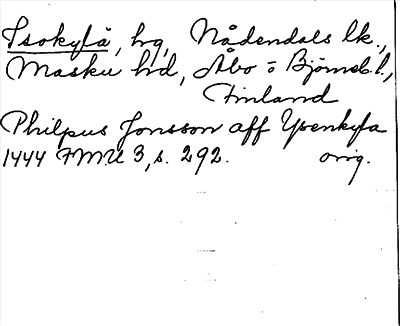 Isokylä, hg, Nådendals lk.,
Masku hd, Åbo o Björneb. l.,
Finland
Philpus Jonsson aff Ysenkyla
1444 FMU 3, s. 292. orig.